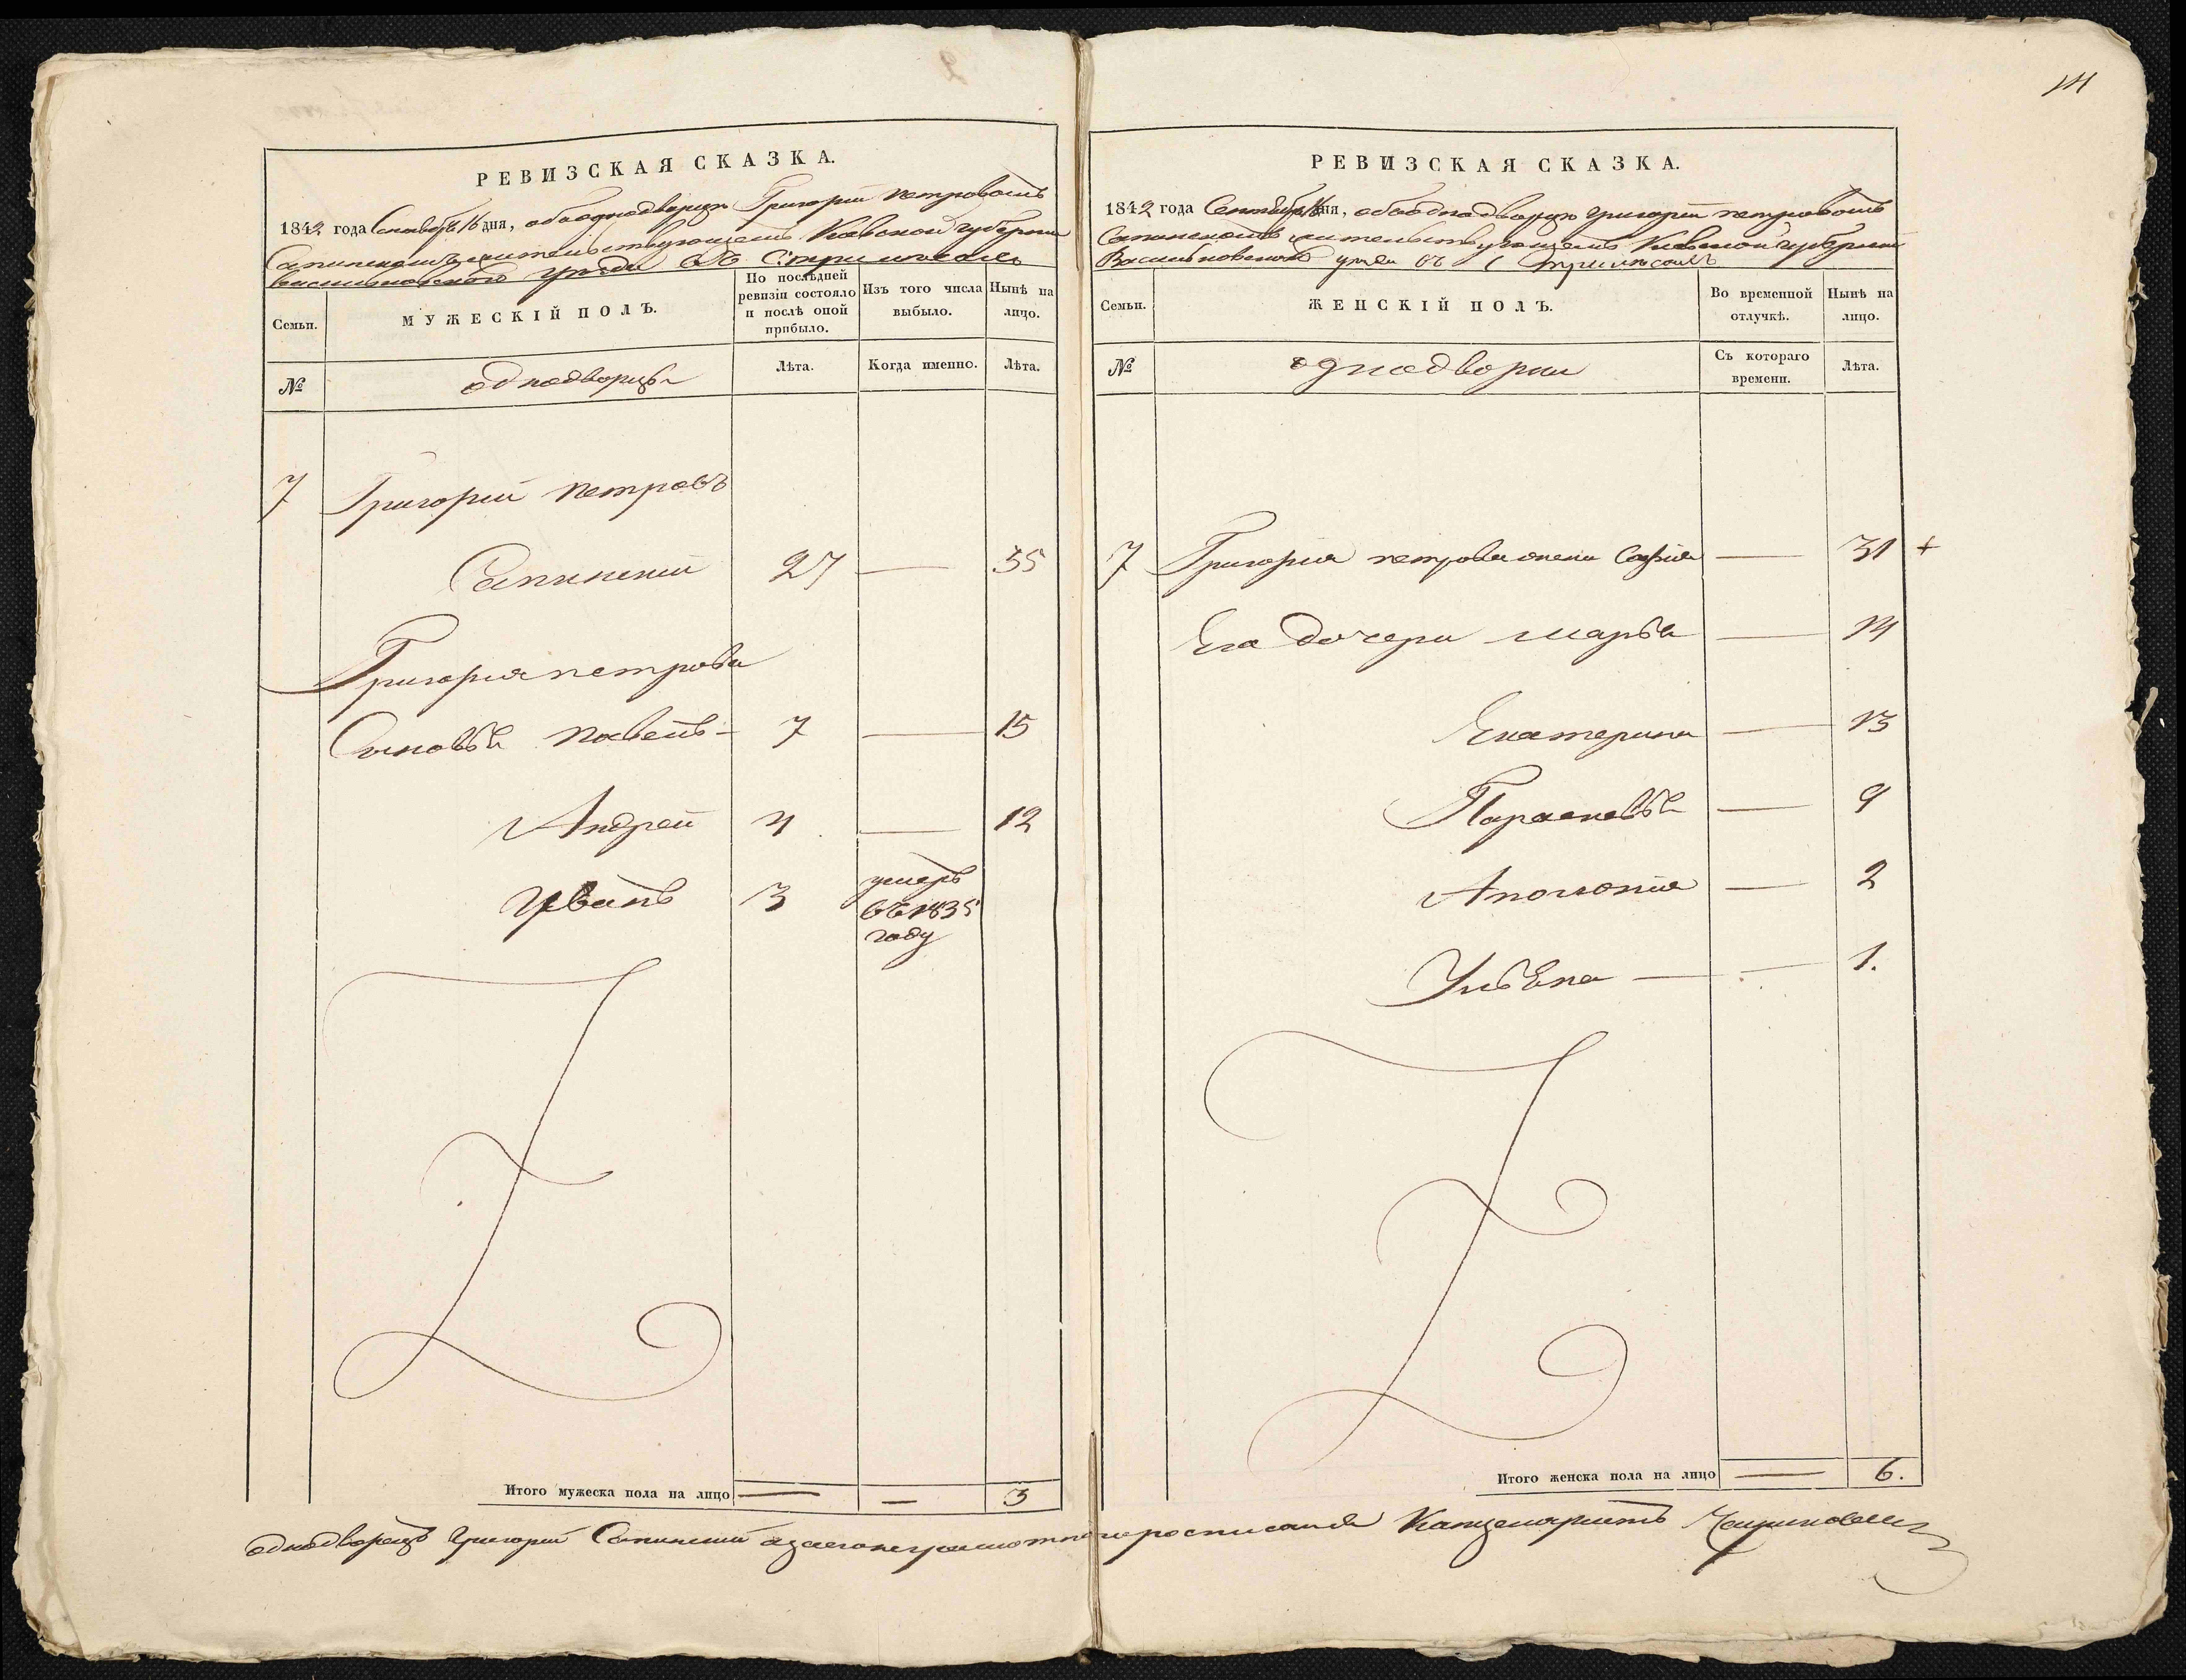 14
РЕВИЗСКАЯ СКАЗКА.
1842 года Сентября 16 дня, обоаднодворце Григорiи петровомъ
Сапинскомъ жительствующемъ Кiевской губернiи
васильковского уезда въ С: Тримисолех
Семьи.
МУЖЕСКIЙ ПОЛЪ.
По послѣдней ревизiи состояло и послѣ оной прибыло.
Изъ того числа выбыло.
Нынѣ на лицо.
№
однодворцы
Лѣта.
Когда именно.
Лѣта.
7 Григорiй петровъ
Сапинскiй 27 — 35
Григорiя петрова
Сыновья павелъ - 7 — 15
Андрей 4 — 12
Иванъ 3 умеръ въ 1835 году
Итого мужеска пола на лицо — — 3
РЕВИЗСКАЯ СКАЗКА.
1842 года Сентября 16 дня, обоаднодворце Григорiи петровомъ
Сапинскомъ жительствующемъ Кiевской губернiи
Васильковского уезда въ С
Семьи.
ЖЕНСКIЙ ПОЛЪ.
Во временной отлучкѣ.
Нынѣ на лицо.
№
однодворки
Съ котораго времени.
Лѣта.
7 Григорiя петрова жена Софiя — 31 +
Его дочери марья — 14
Екатерина — 13
Парасковья — 9
Аполонiя — 2
Ульяна — — 1.
Итого женска пола на лицо — 6.
однодворецъ Григорiй Сапинскiй а за его неграмотного росписался Канцеляристъ